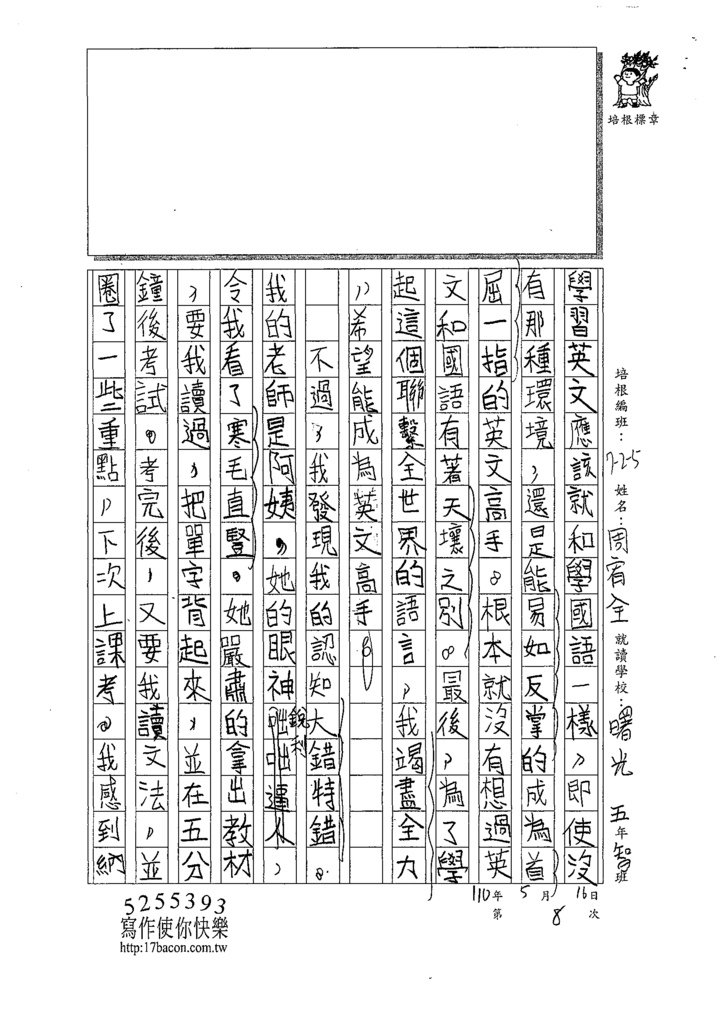 培根標章
培根編班：7-225 姓名：周宥全 就讀學校：曙光 五年智班
110年5月16日
第8次
學習英文應該就和學國語一樣，即使沒
有那種環境，還是能易如反掌的成為首
屈一指的英文高手。根本就沒有想過英
文和國語有著天壤之別。最後，為了學
起這個聯繫全世界的語言，我竭盡全力
，希望能成為英文高手。
不過，我發現我的認知大錯特錯。
我的老師是阿姨，她的眼神銳利咄咄逼人，
令我看了寒毛直豎。她嚴肅的拿出教材
，要我讀過，把單字背起來，並在五分
鐘後考試。考完後，又要我讀文法，並
圈了一些重點，下次上課考。我感到納
5255393
寫作使你快樂
http:17bacon.com.tw